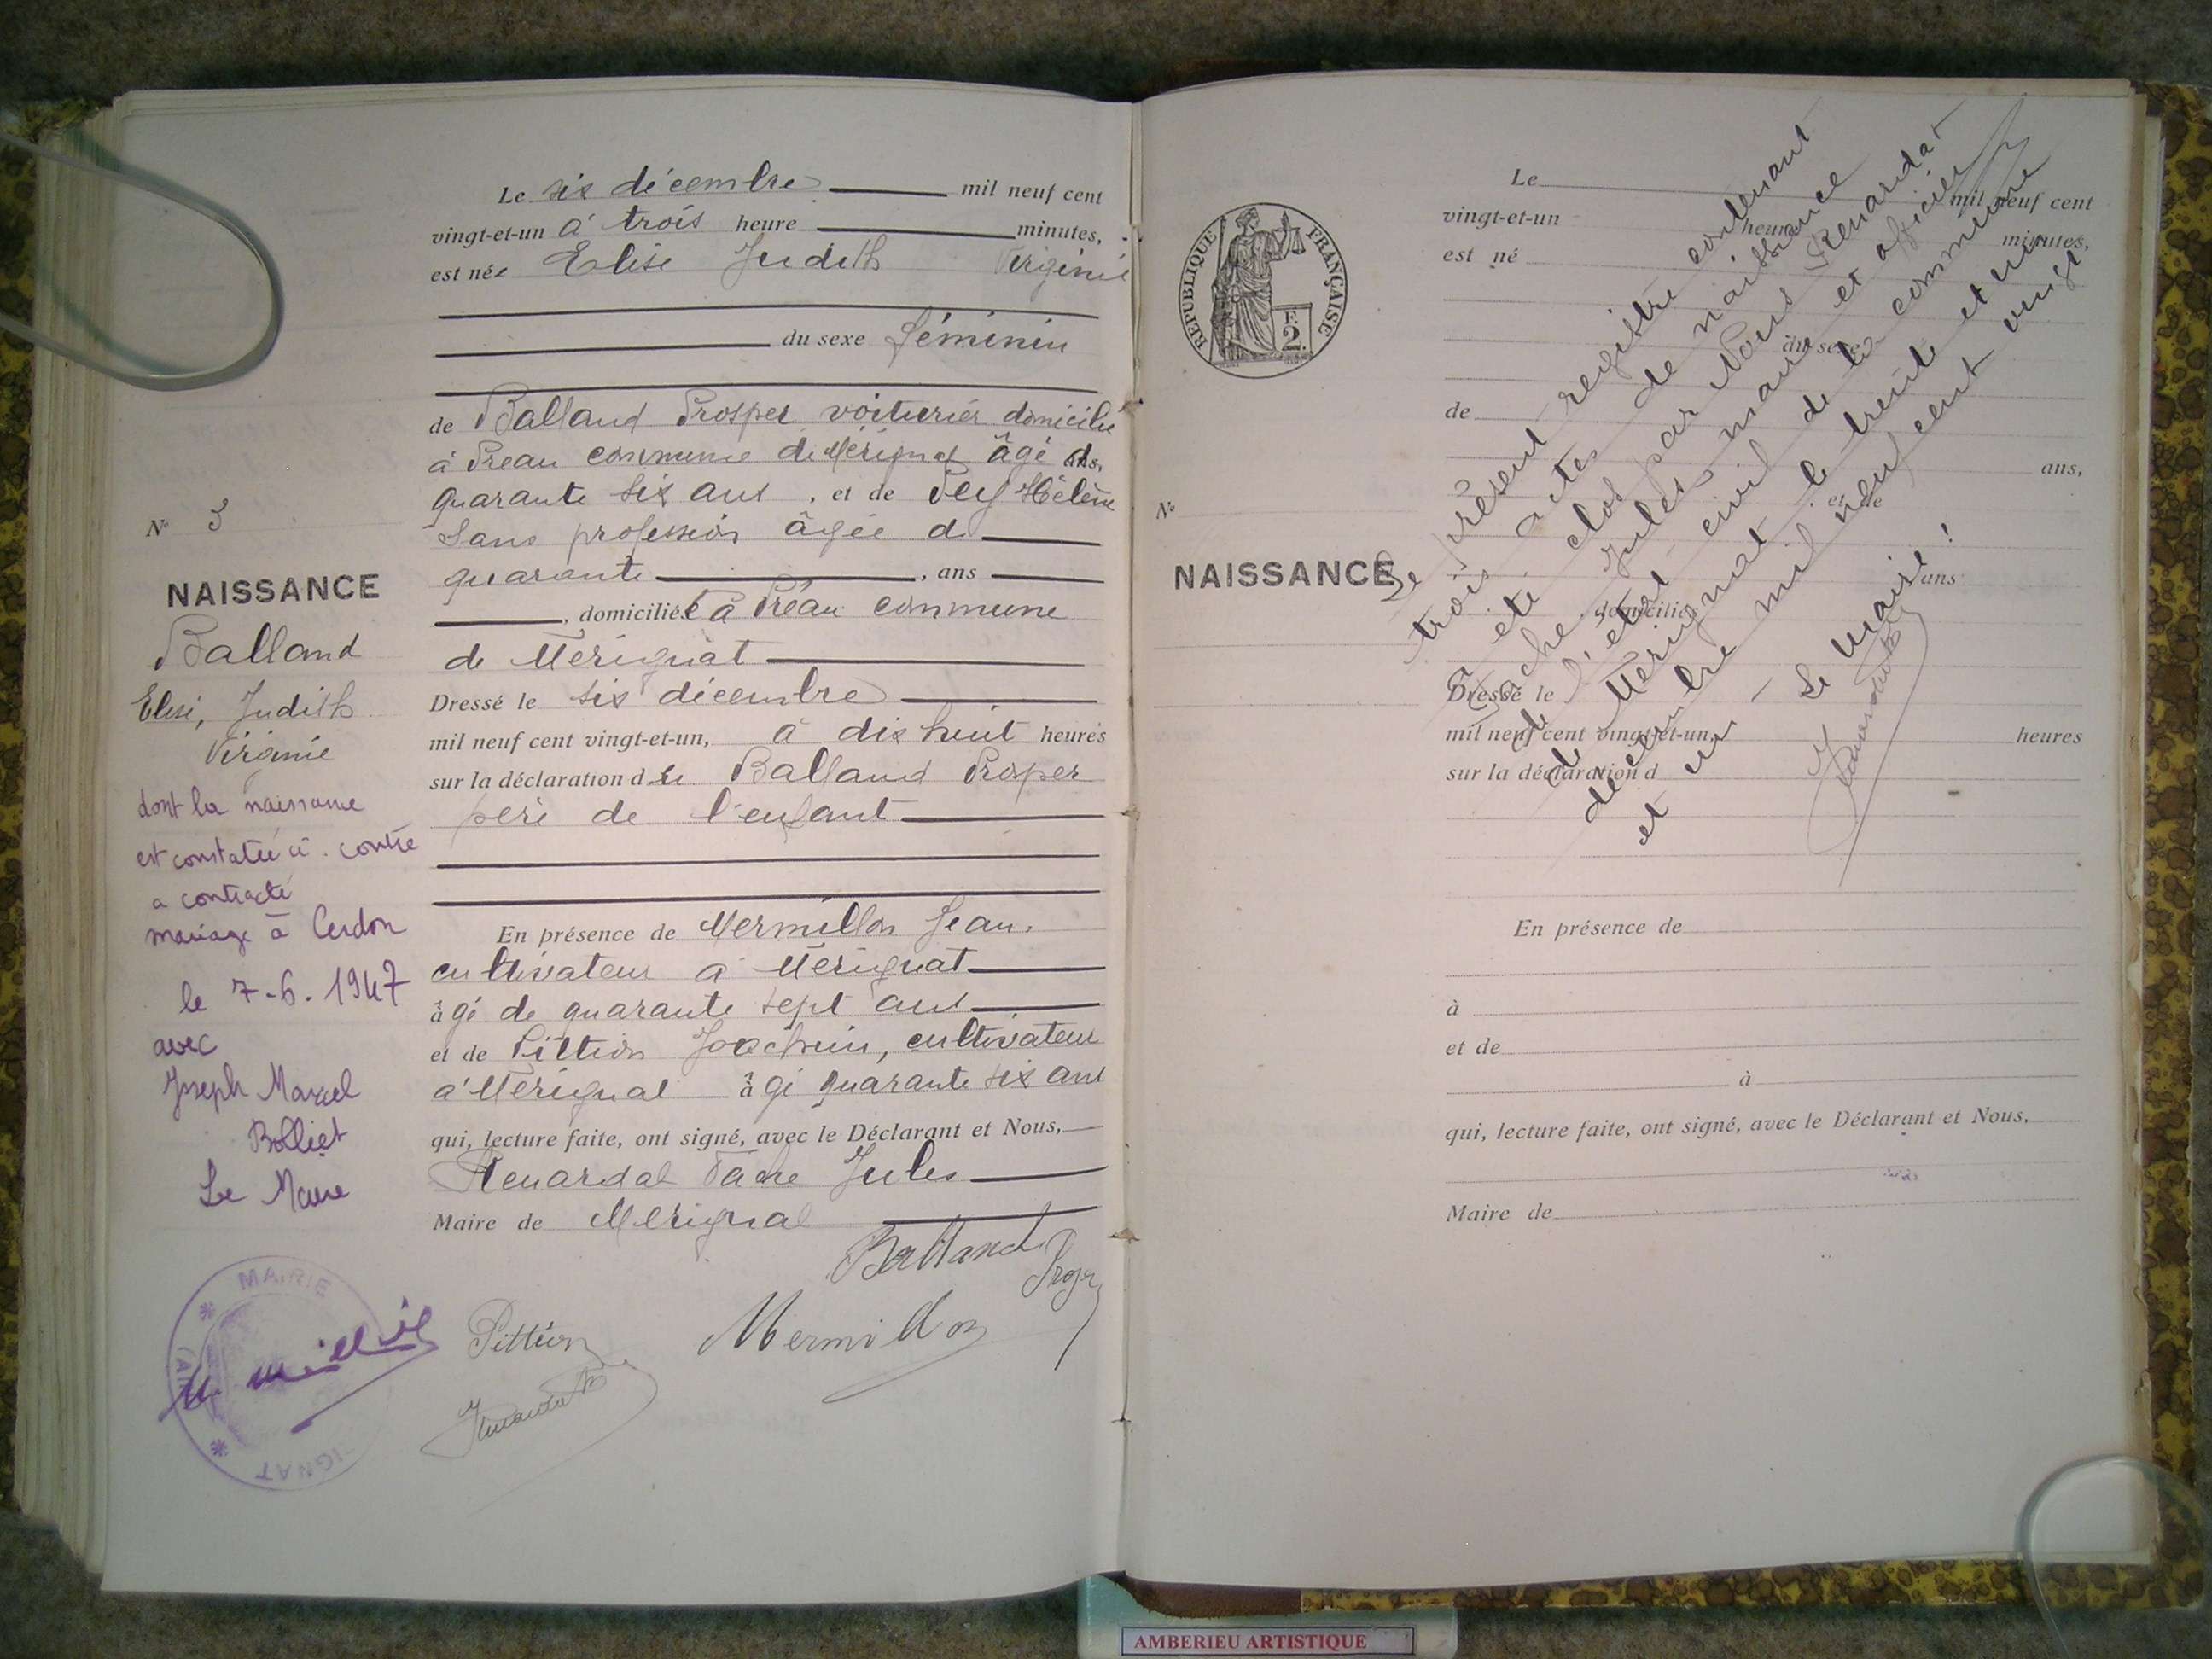 Le six décembre mil neuf cent
vingt-et-un à trois heure minutes,
est née Elise Judith Virginie
du sexe féminin
de Balland Prosper voiturier domicilié
à Préau commune de Mérignat âgé d ans,
quarante six ans, et de Pey Hélène
sans profession âgée d
quarante, ans
, domiciliée à Préau commune
de Mérignat
Dressé le six décembre
mil neuf cent vingt-et-un, à dix huit heures
sur la déclaration d u Balland Prosper
père de l'enfant
En présence de Mermillon Jean,
cultivateur à Mérignat
âgé de quarante sept ans
et de Pittion Joachim, cultivateur
à Mérignat âgé quarante six ans
qui, lecture faite, ont signé, avec le Déclarant et Nous,
Renardat Tache Jules
Maire de Mérignat
Balland Prosper
Pittion Mermillon
N° 3
NAISSANCE
Balland
Elise, Judith
Virginie
dont la naissance
est constatée ci-contre
a contracté
mariage à Cerdon
le 7-6-1947
avec
Joseph Marcel
Bolliet
Le Maire
MAIRIE
(AIN)
IGNAT
REPUBLIQUE FRANÇAISE
F.
2.
N°
NAISSANCE
Le mil neuf cent
vingt-et-un heure minutes,
est né
du sexe
de
ans,
et de
ans
, domicilié
Dressé le
mil neuf cent vingt-et-un, heures
sur la déclaration d
En présence de
à
et de
à
qui, lecture faite, ont signé, avec le Déclarant et Nous,
Maire de
Le présent registre contenant
trois actes de naissance
a été clos par Nous Renardat
Tache Jules maire et officier
de l'état civil de la commune
de Mérignat le trente et un
décembre mil neuf cent vingt
et un
Le Maire !
AMBERIEU ARTISTIQUE